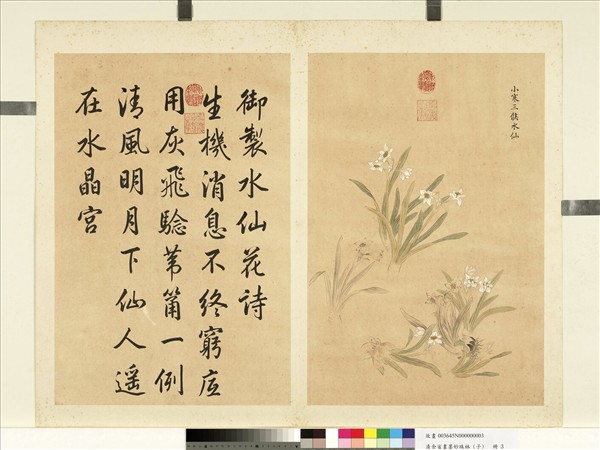 小寒三候水仙
御製水仙花詩
生機消息不終窮应
用灰飛騐葦筩一例
清風明月下仙人遥
在水晶宮
故畫 003645N000000003
清余省畫墨妙珠林(子) 冊 3